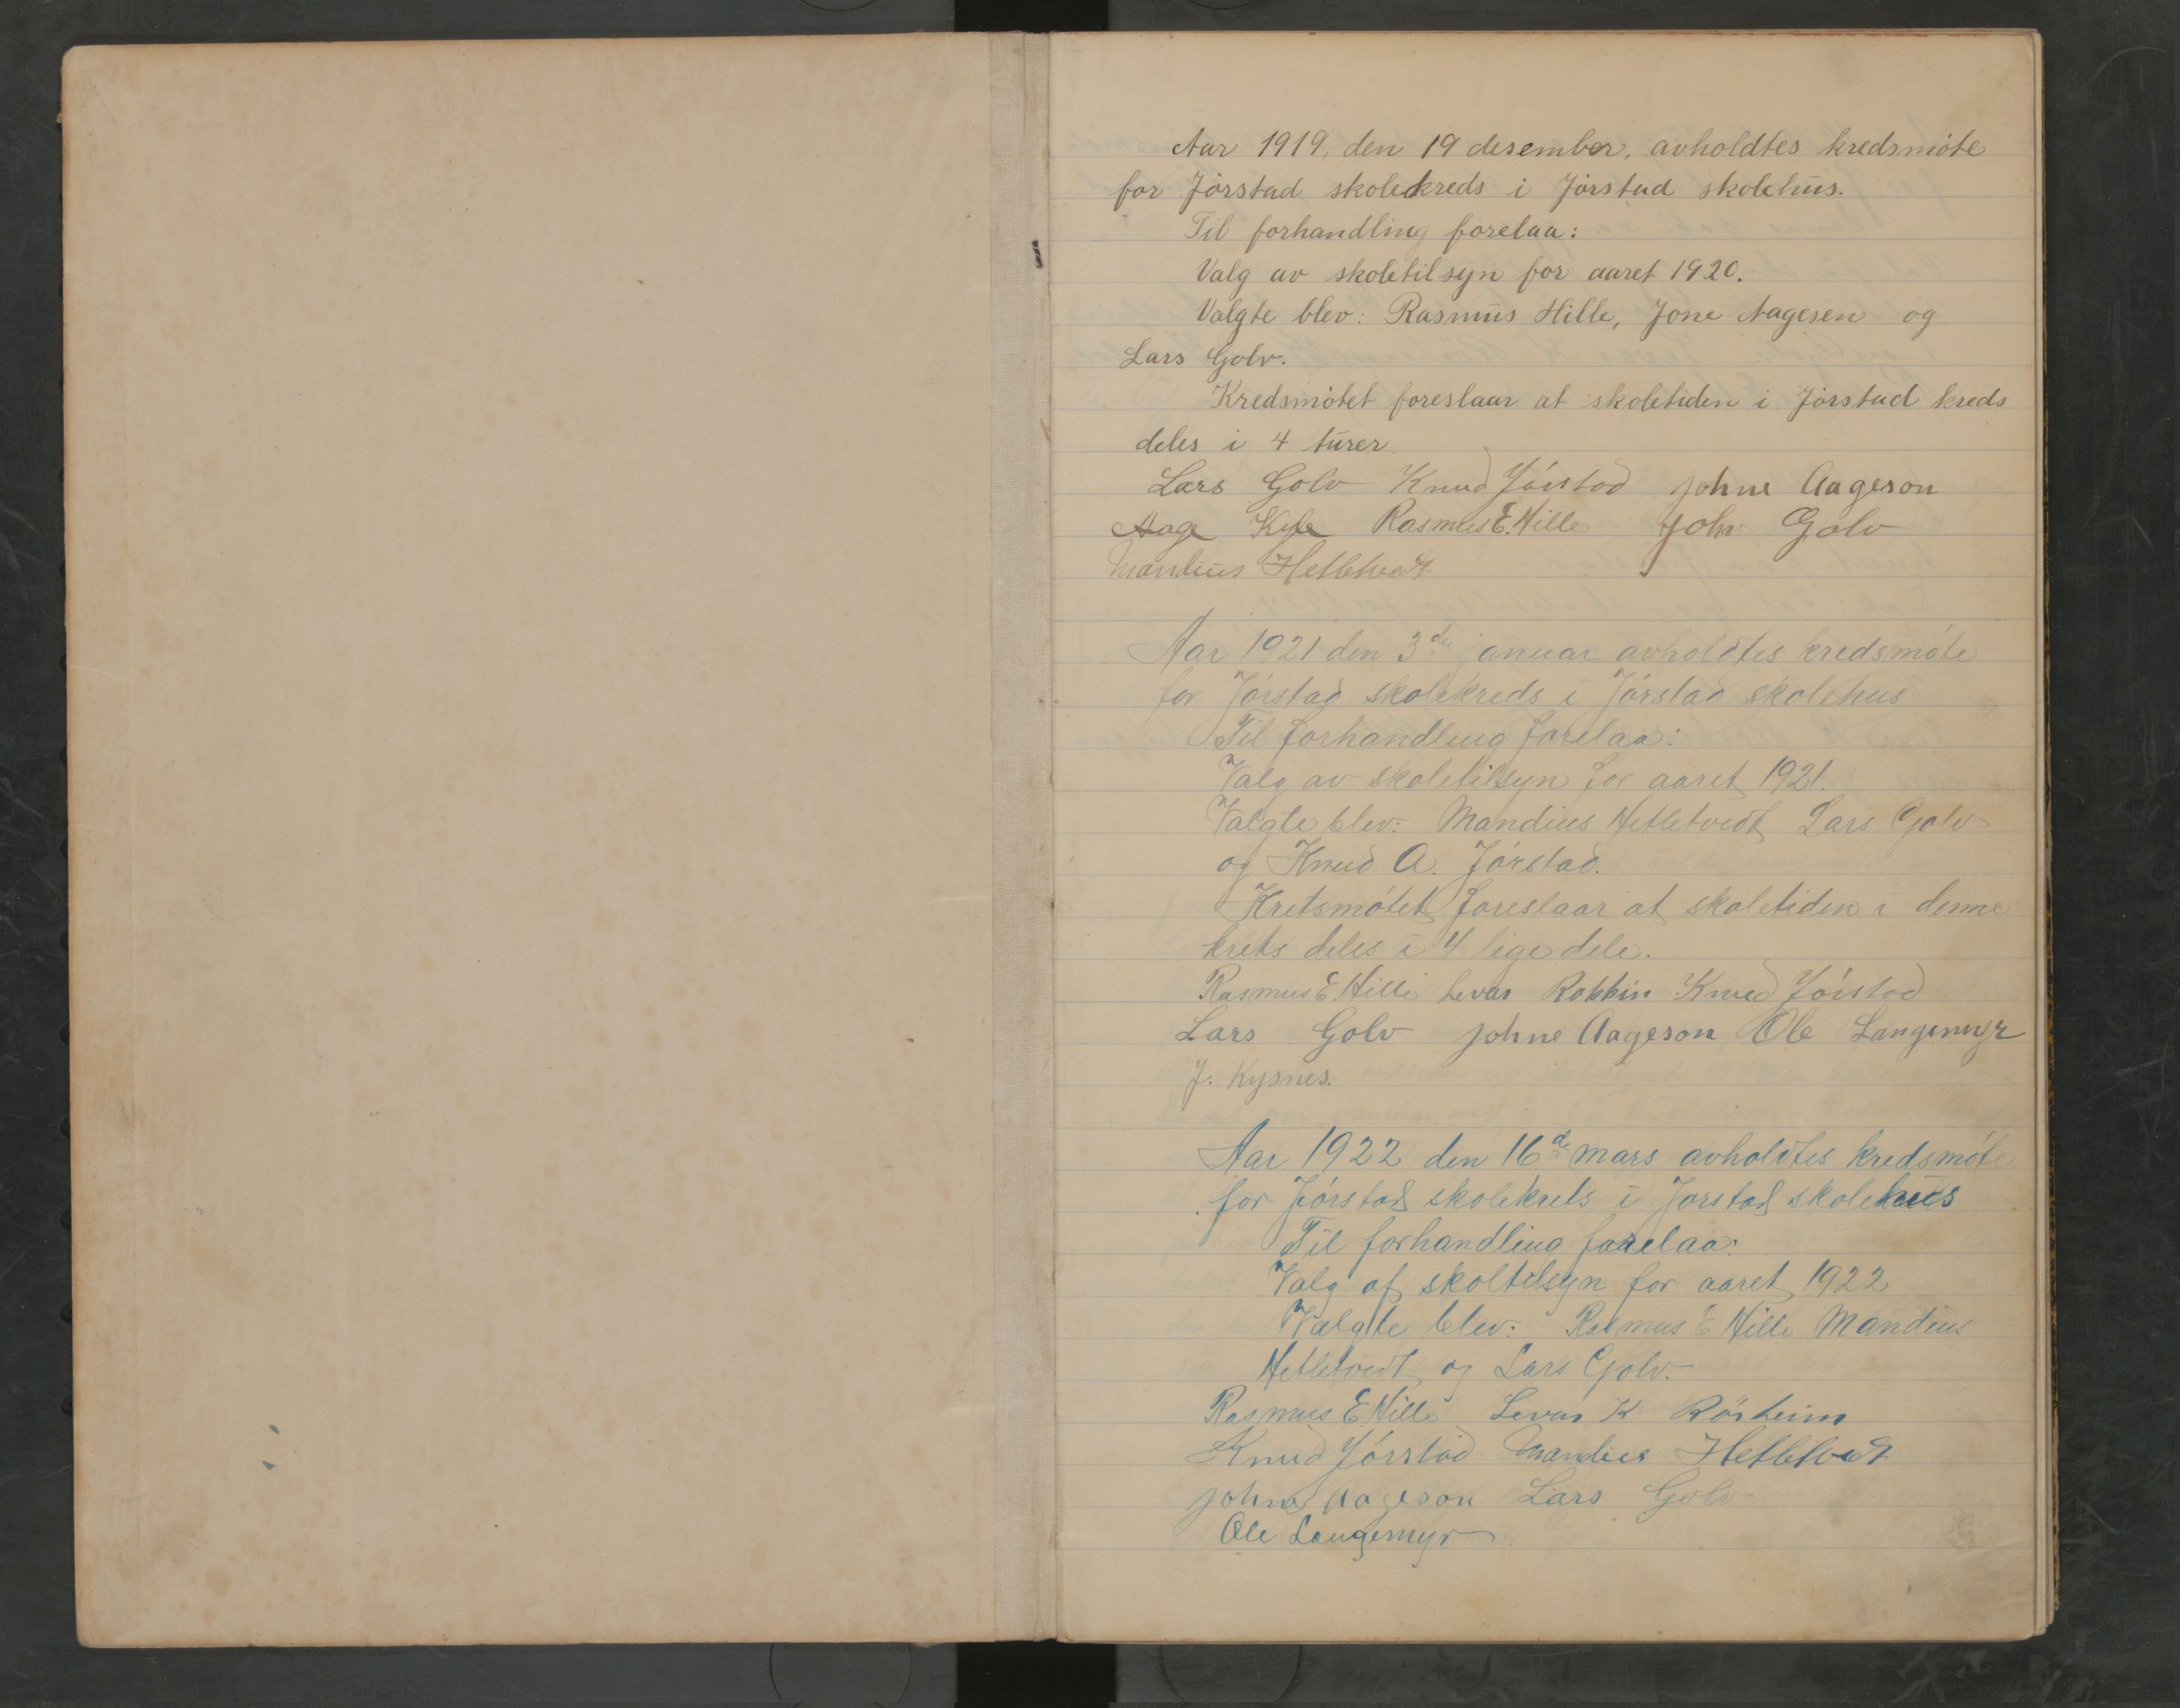 Aar 1919, den 19 desember, avholdtes kredsmöte
for Jörstad skolekreds i Jörstad skolehus.
Til forhandling forelaa:
Valg av skoletilsyn for aaret 1920.
Valgte blev: Rasmus Hille, Jone Aagesen og
Lars Golv.
Kredsmötet foreslaar at skoletiden i Jörstad kreds
deles i 4 turer.
Lars Golv Knud Jörstad Johne Aageson
Aage Rasmus E. Hille John Golv
Mandius Hetletvedt
Aar 1921 den 3die januar avholdtes kredsmöte
for Jörstad skolekreds i Jörstad skolehus
Til forhandling forelaa:
Valg av skoletilsyn for aaret 1921.
Valgte blev: Mandius Hetletvedt Lars Golv
og Knud A. Jörstad.
Kretsmötet foreslaar at skoletiden i denne
krets deles i 4 lige dele.
Rasmus E. Hille Levar Knud Jörstad
Lars Golv Johne Aageson Ole Langemyr
J. Kysnes.
Aar 1922 den 16de mars avholdtes kredsmöte
for Jörstad skolekrets i Jorstad skolehus
Til forhandling forelaa:
Valg af skoltilsyn for aaret 1922
Valgte blev: Rasmus E Hille Mandius
Hetletvedt og Lars Golv.
Rasmus E. Hille Levar K Rörheim
Knud Jörstad Mandius Hetletvedt
Johne Aageson Lars Golv
Ole Langemyr